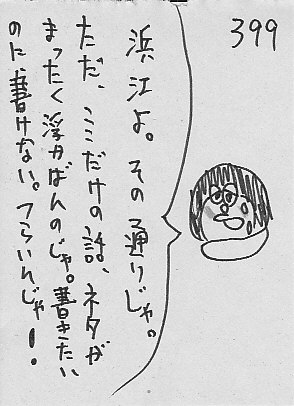 399
浜江よ。その通りじゃ。
ただ、ここだけの話、ネタが
まったく浮かばんのじゃ。書きたい
のに、書けない。つらいんじゃ!